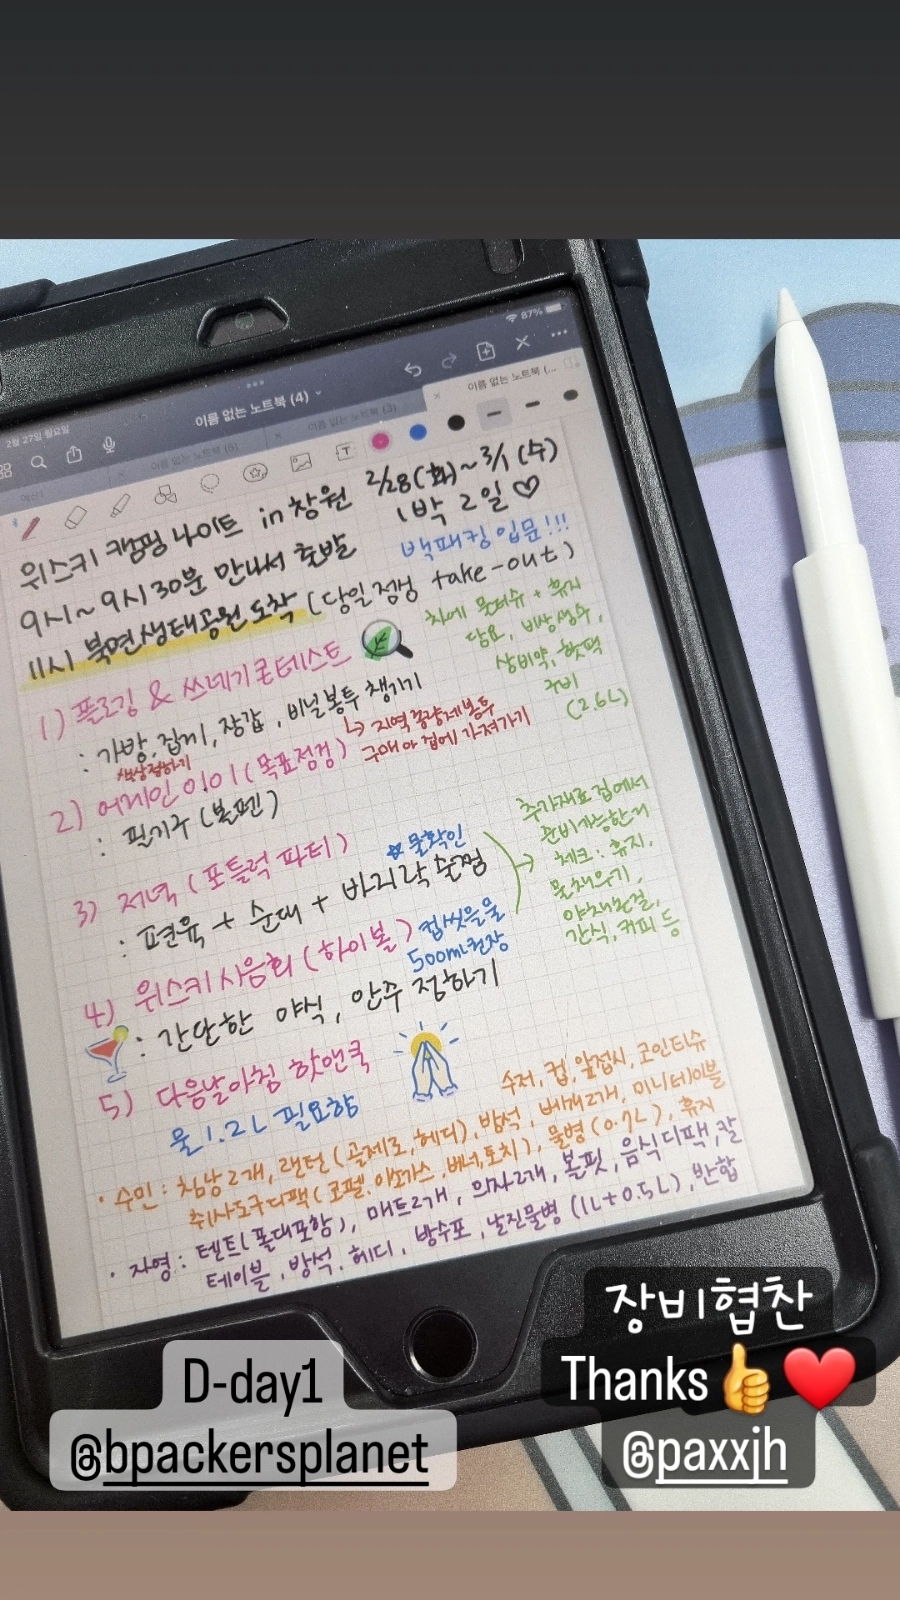 87%
2월 27일 월요일
이름 없는 노트북 (4)
이름 없는 노트북 (...
이름 없는 노트북 (5)
이름 없는 노트북 (3)
위스키 캠핑 나이트 in 창원 2/28(화)~3/1 (수)
1박 2일♡
9시~9시30분 만나서 출발
백패킹 입문!!!
11시 북면생태공원 도착 (당일점심 take-out)
차에 물티슈 + 휴지
담요, 비상생수,
상비약, 핫팩
구비
(2.6L)
1) 플로깅 & 쓰레기콘테스트
: 가방, 집게, 장갑, 비닐봉투 챙기기
색상정하기
↳ 지역 종량제봉투
구매 아 집에 가져가기
2) 어메인이이 (목표점검)
: 필기구 (볼펜)
3) 저녁 (포틀럭 파티)
☆ 물확인
: 편육 + 순대 + 바지락술찜
추가재료 집에서
준비가능한거
체크: 휴지,
물채우기,
야채손질,
간식, 커피 등
4) 위스키시음회 (하이볼)
컵씻을물
500ml권장
: 간단한 야식, 안주 정하기
5) 다음날아침 핫앤쿡
물 1.2L 필요함
수저, 컵, 앞접시, 코인티슈
· 수민: 침낭2개, 랜턴(골제로, 헤디), 방석, 베개2개, 미니테이블
취사도구디팩(코펠, 이소가스, 버너, 토치), 물병(0.7L), 휴지
· 자영: 텐트(폴대포함), 매트2개, 의자2개, 볼핏, 음식디팩, 칼
테이블, 방석, 헤디, 방수포, 날진물병 (1L+0.5L), 반합
장비협찬
Thanks👍❤️
@paxxjh
D-day1
@bpackersplanet